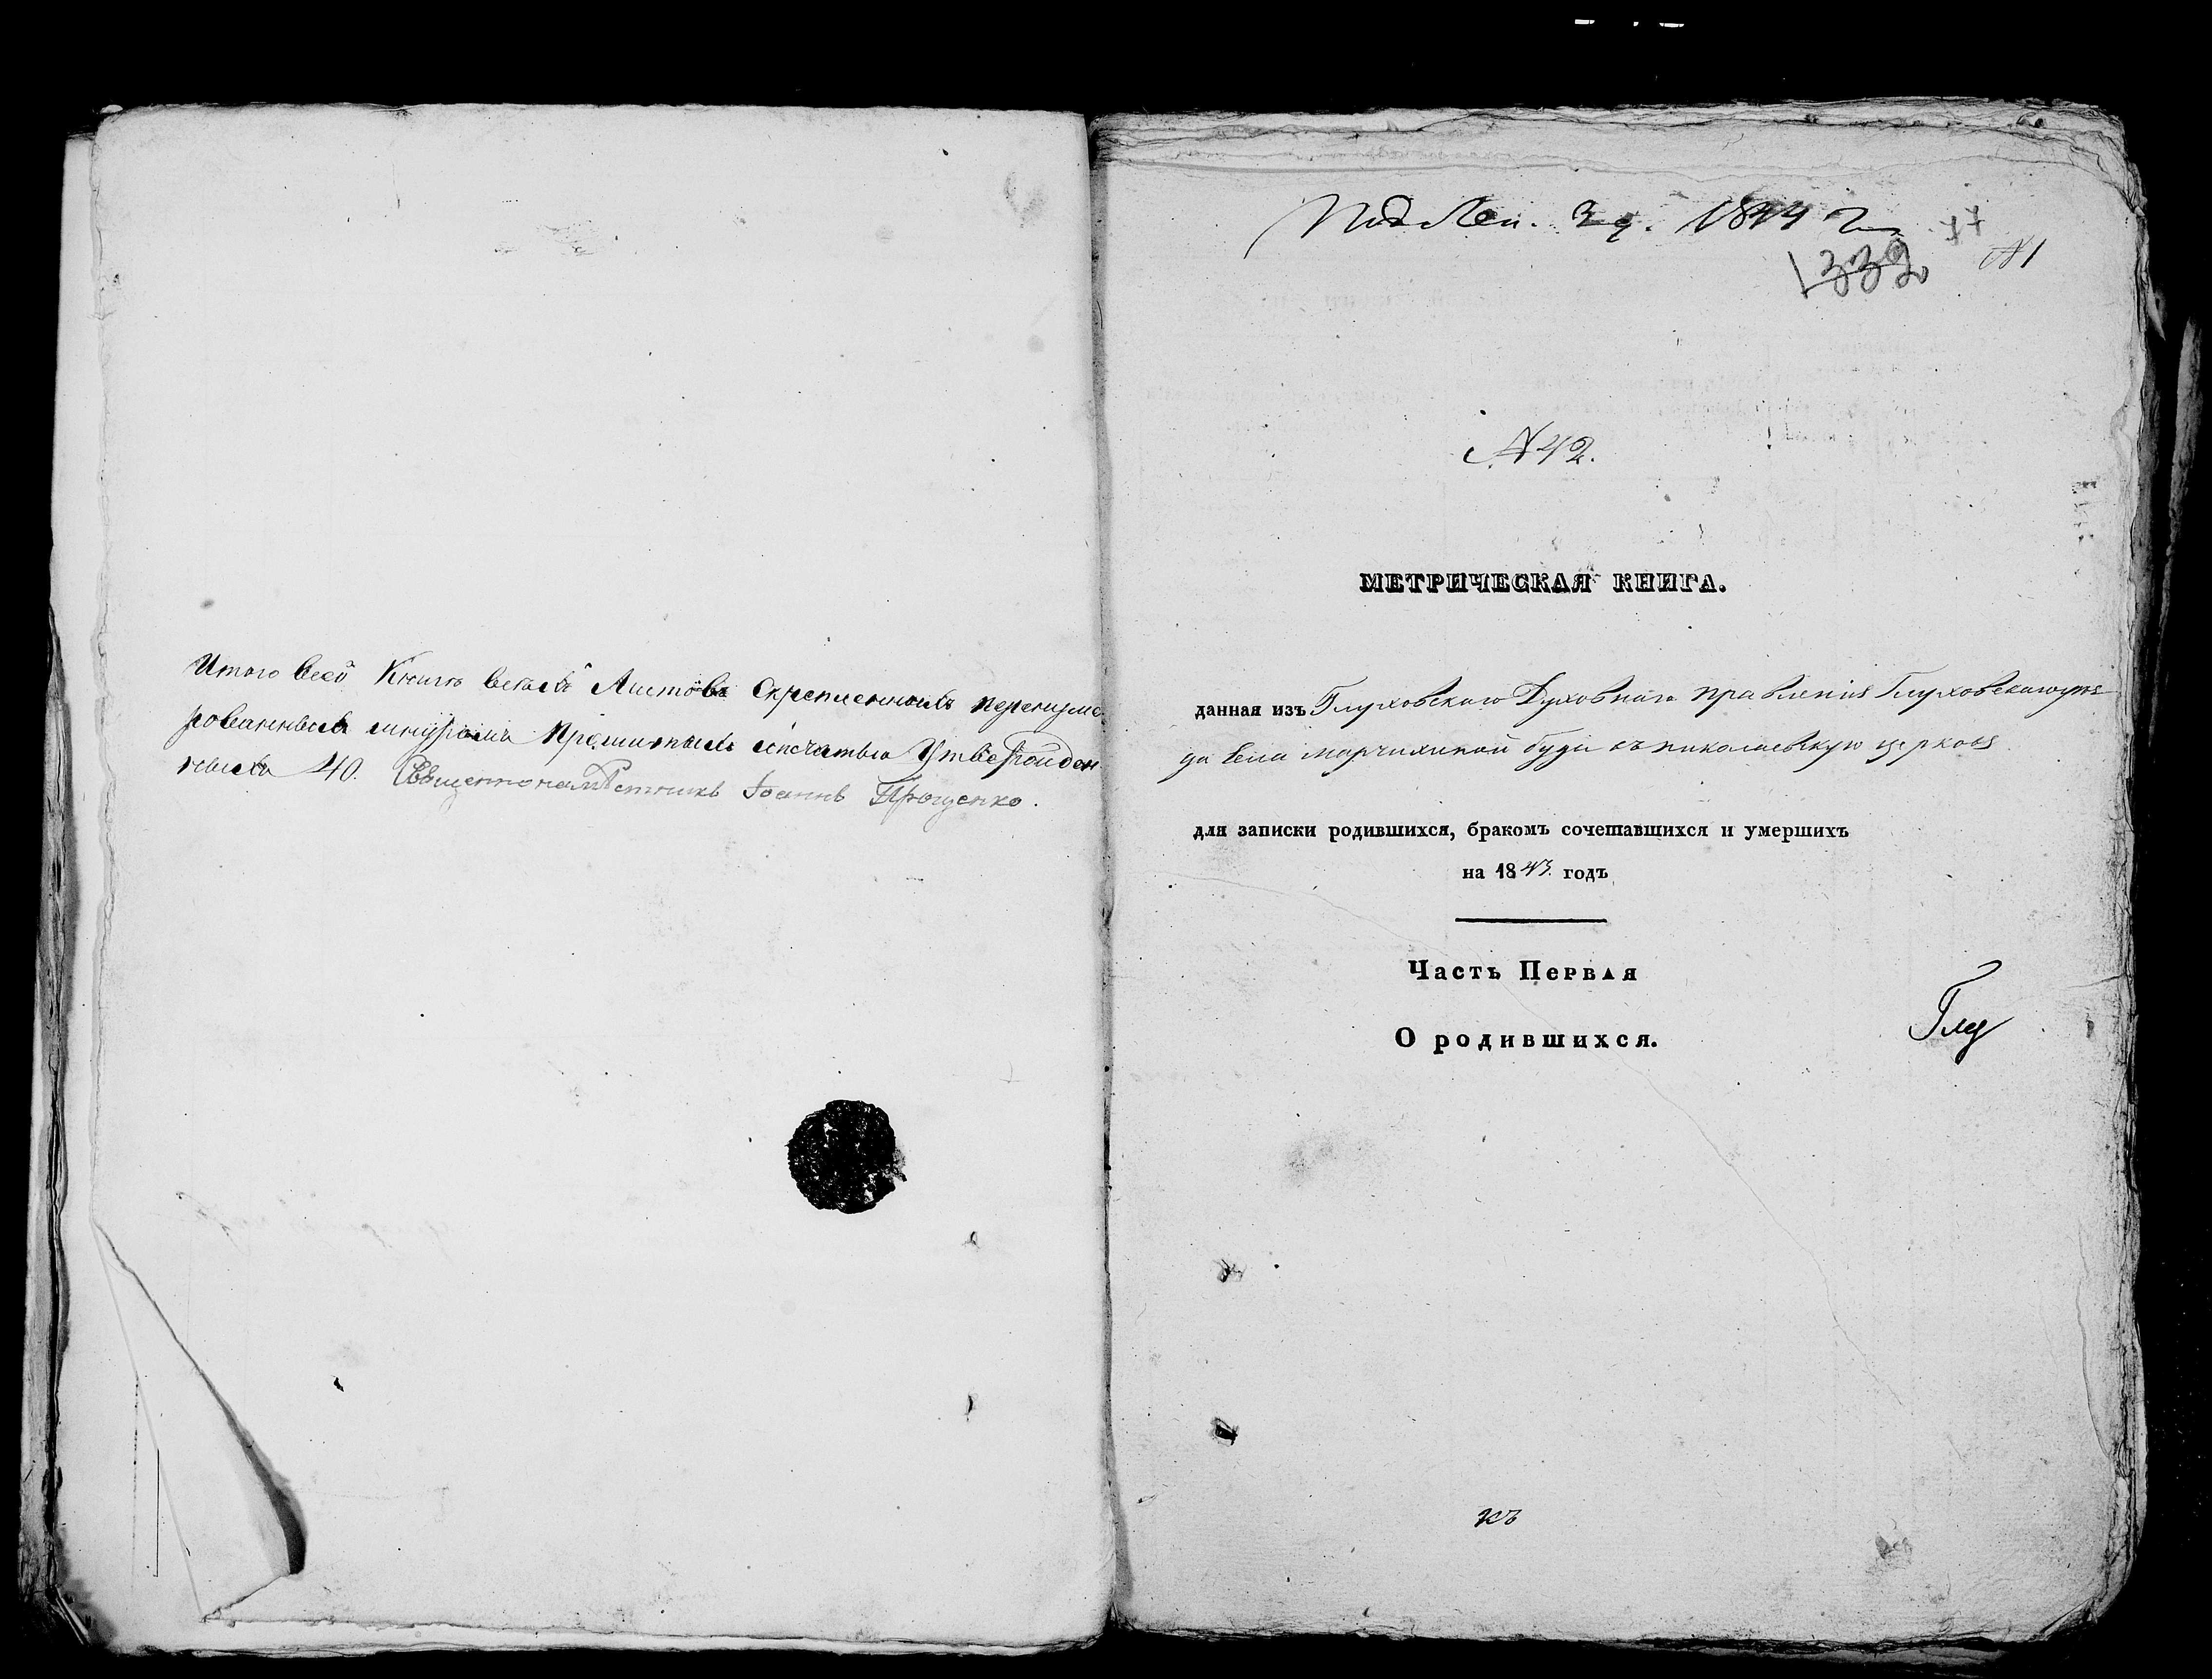 Итого всей Книги всехъ Листовъ Скрепленныхъ перенуме
рованныхъ шнуромъ Прошитыхъ ипечатью Утвержден
ныхъ 40. Священнонаместникъ Іоаннъ Проценко.
1844
1332
№1
№ 42.
МЕТРИЧЕСКАЯ КНИГА.
данная изъ Глуховскаго Духовнаго правленія Глуховскагоуѣз
да села марчихиной буди въ николаевскую церковь
для записки родившихся, бракомъ сочетавшихся и умершихъ
на 1843 годъ
Часть Первая
О родившихся.
Глу